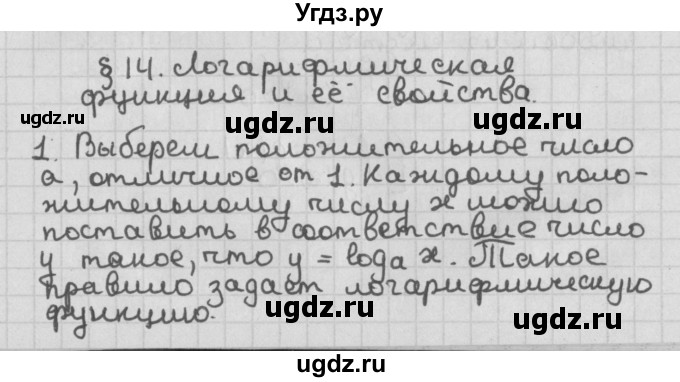 Угдз.ру
§ 14. Логарифмическая
функция и её свойства.
ugdz.ru ugdz.ru ugdz.ru
1. Выберем положительное число
a, отличное от 1. Каждому поло-
ugdz.ru ugdz.ru
жительному числу x можно
поставить в соответствие число
y такое, что y = loga x. Такое
правило задаёт логарифмическую
ugdz.ru ugdz.ru
функцию.
ugdz.ru